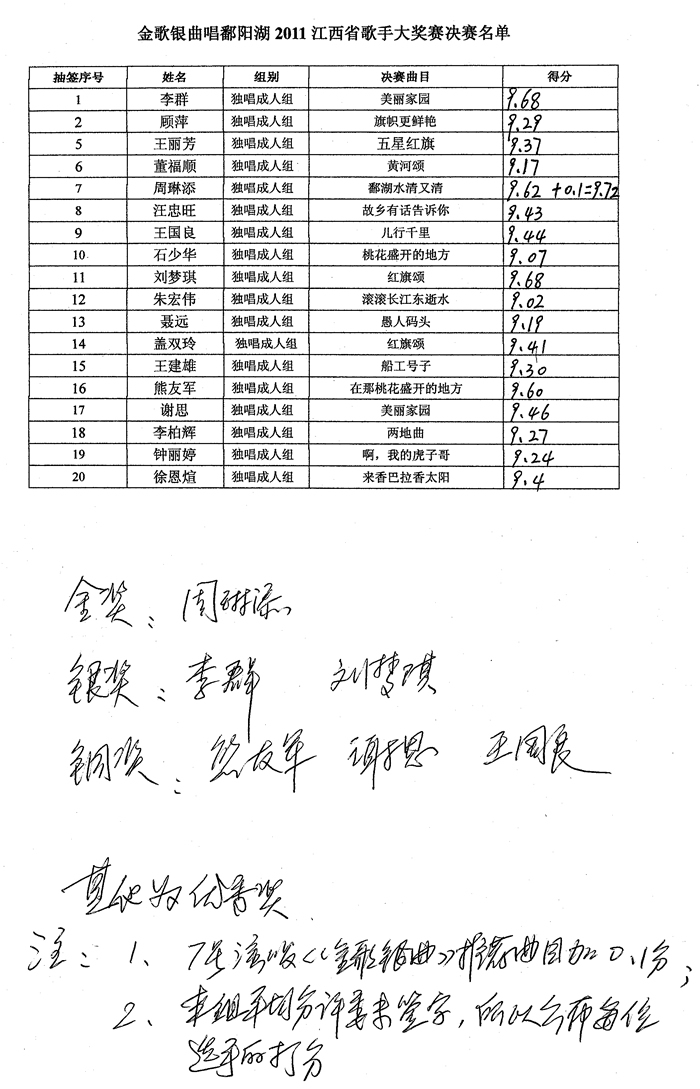 金歌银曲唱鄱阳湖 2011 江西省歌手大奖赛决赛名单
抽签序号 姓名 组别 决赛曲目 得分
1 李群 独唱成人组 美丽家园 9.68
2 顾萍 独唱成人组 旗帜更鲜艳 9.29
5 王丽芳 独唱成人组 五星红旗 9.37
6 董福顺 独唱成人组 黄河颂 9.17
7 周琳添 独唱成人组 鄱湖水清又清 9.62 +0.1=9.72
8 汪忠旺 独唱成人组 故乡有话告诉你 9.43
9 王国良 独唱成人组 儿行千里 9.44
10 石少华 独唱成人组 桃花盛开的地方 9.07
11 刘梦琪 独唱成人组 红旗颂 9.68
12 朱宏伟 独唱成人组 滚滚长江东逝水 9.02
13 聂远 独唱成人组 愚人码头 9.19
14 盖双玲 独唱成人组 红旗颂 9.41
15 王建雄 独唱成人组 船工号子 9.30
16 熊友军 独唱成人组 在那桃花盛开的地方 9.60
17 谢思 独唱成人组 美丽家园 9.46
18 李柏辉 独唱成人组 两地曲 9.27
19 钟丽婷 独唱成人组 啊，我的虎子哥 9.24
20 徐恩煊 独唱成人组 来香巴拉香太阳 9.4
金奖：周琳添
银奖：李群 刘梦琪
铜奖：熊友军 谢思 王国良
其他为优秀奖
注：1、7号演唱《金歌银曲》推荐曲目加0.1分；
2、本组平均分评委未签字，所以公布每位
选手的打分